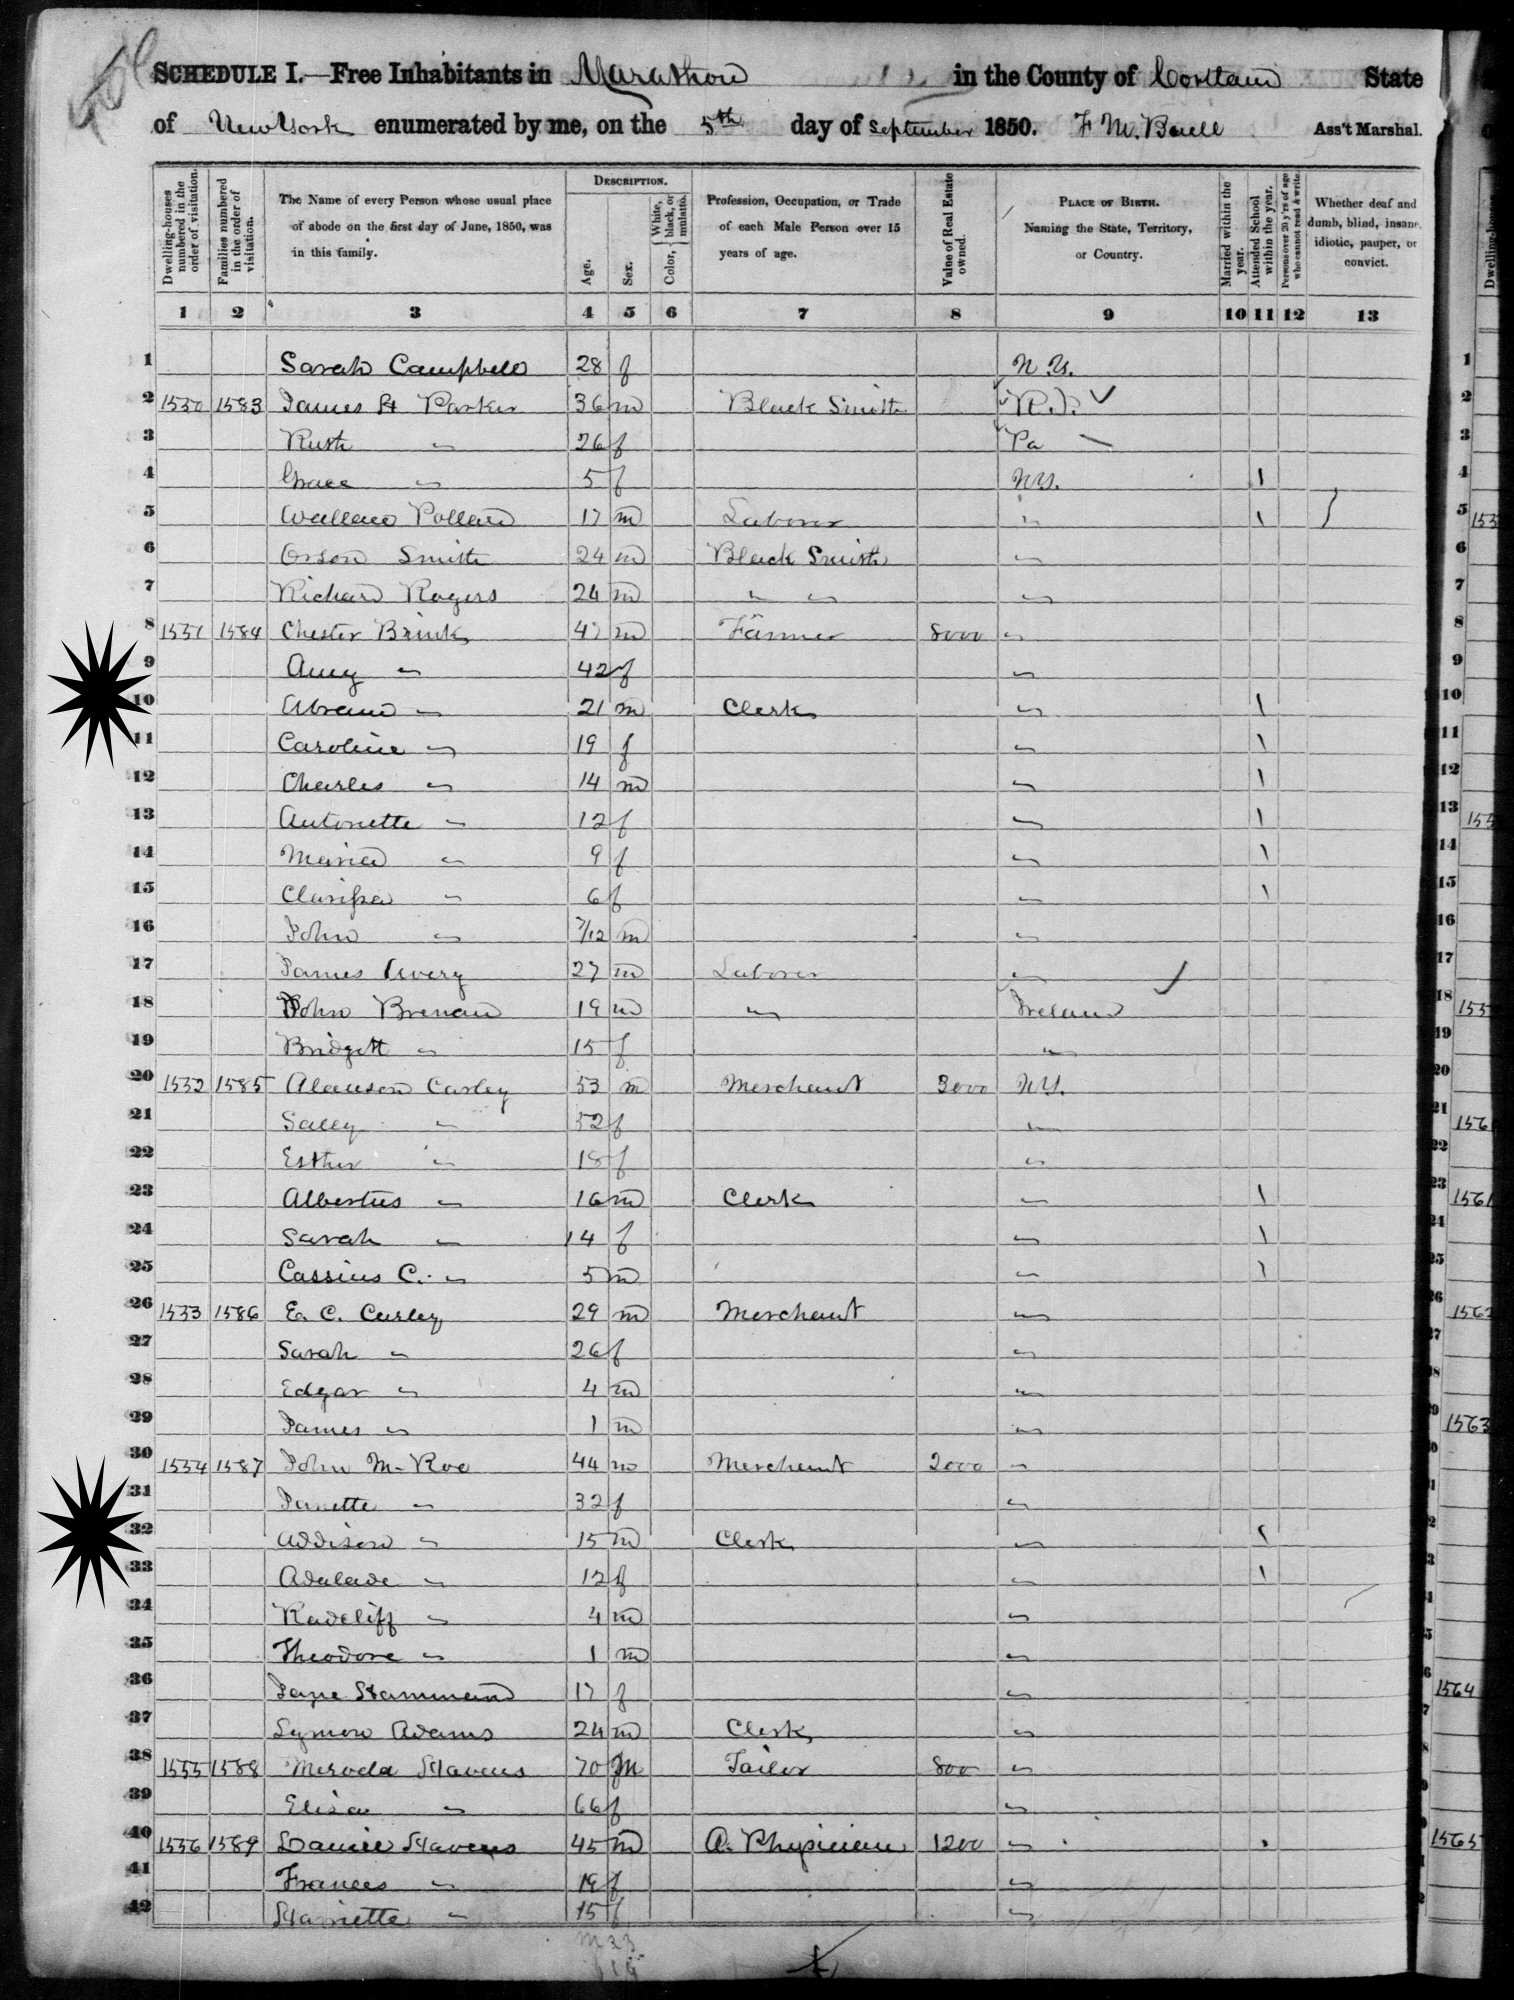 SCHEDULE I.—Free Inhabitants in Marathon in the County of Cortland State
of New York enumerated by me, on the 5th day of September 1850. F M. Buell Ass't Marshal.
Dwelling-houses numbered in the order of visitation.
Families numbered in the order of visitation.
The Name of every Person whose usual place of abode on the first day of June, 1850, was in this family.
DESCRIPTION.
Age.
Sex.
Color, White, black, or mulatto.
Profession, Occupation, or Trade of each Male Person over 15 years of age.
Value of Real Estate owned.
PLACE OF BIRTH. Naming the State, Territory, or Country.
Married within the year.
Attended School within the year.
Persons over 20 y'rs of age who cannot read & write.
Whether deaf and dumb, blind, insane, idiotic, pauper, or convict.
1 2 3 4 5 6 7 8 9 10 11 12 13
1 Sarah Campbell 28 f N.Y.
2 1550 1583 James H Parker 36 m Black Smith R.I.
3 Ruth " 26 f Pa
4 Grace " 5 f N.Y. 1
5 Wallace Pollard 17 m Laborer " 1
6 Orson Smith 24 m Black Smith "
7 Richard Rogers 24 m " " "
8 1551 1584 Chester Brink 47 m Farmer 8000 "
9 Amy " 42 f "
10 Abram " 21 m Clerk " 1
11 Caroline " 19 f " 1
12 Charles " 14 m " 1
13 Antonette " 12 f " 1
14 Maria " 9 f " 1
15 Clarissa " 6 f " 1
16 John " 7/12 m "
17 James Avery 27 m Laborer "
18 John Brenan 19 m " Ireland
19 Bridgett " 15 f "
20 1552 1585 Alanson Carley 53 m Merchant 3000 N.Y.
21 Sally " 52 f "
22 Esther " 18 f "
23 Albertus " 16 m Clerk " 1
24 Sarah " 14 f " 1
25 Cassius C. " 5 m " 1
26 1553 1586 E. C. Carley 29 m Merchant "
27 Sarah " 26 f "
28 Edgar " 4 m "
29 James " 1 m "
30 1554 1587 John M. Roe 44 m Merchant 2000 "
31 Janette " 32 f "
32 Addison " 15 m Clerk " 1
33 Adalade " 12 f " 1
34 Radcliff " 4 m "
35 Theodore " 1 m "
36 Jane Hammand 17 f "
37 Lymon Adams 24 m Clerk "
38 1555 1588 Havens 70 m Tailor 800 "
39 Eliza " 66 f "
40 1556 1589 Daniel Havens 45 m A. Physician 1200 "
41 Frances " 19 f "
42 Harriette " 15 f "